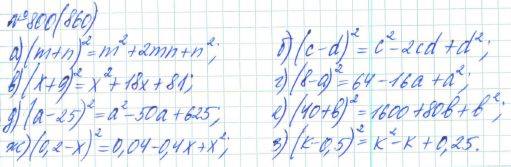 №800(860)
а) (m+n)² = m² + 2mn + n²; б) (c-d)² = c² - 2cd + d²;
в) (x+9)² = x² + 18x + 81; г) (8-a)² = 64 - 16a + a²;
д) (a-25)² = a² - 50a + 625; е) (40+b)² = 1600 + 80b + b²;
ж) (0,2-x)² = 0,04 - 0,4x + x²; з) (k-0,5)² = k² - k + 0,25.